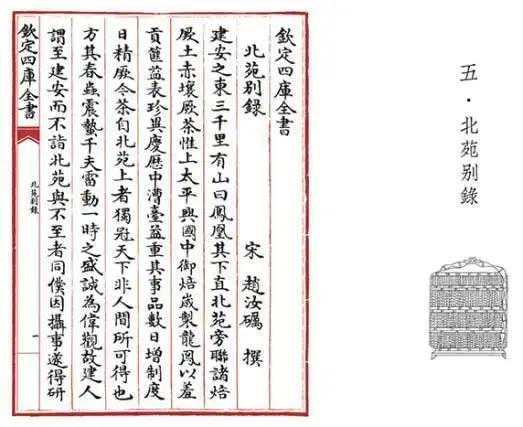 五·北苑别錄
欽定四庫全書
北苑别錄 宋 趙汝礪 撰
建安之東三千里有山曰鳳凰其下直北苑旁聯諸焙
厥土赤壤厥茶惟上太平興國中御焙歲製龍鳳以羞
貢篚益表珍異慶歷中漕臺益重其事品數日增制度
日精厥今茶自北苑上者獨冠天下非人間所可得也
方其春蟲震蟄千夫雷動一時之盛誠為偉觀故建人
謂至建安而不詣北苑與不至者同僕因攝事遂得研
欽定四庫全書
北苑别錄
一